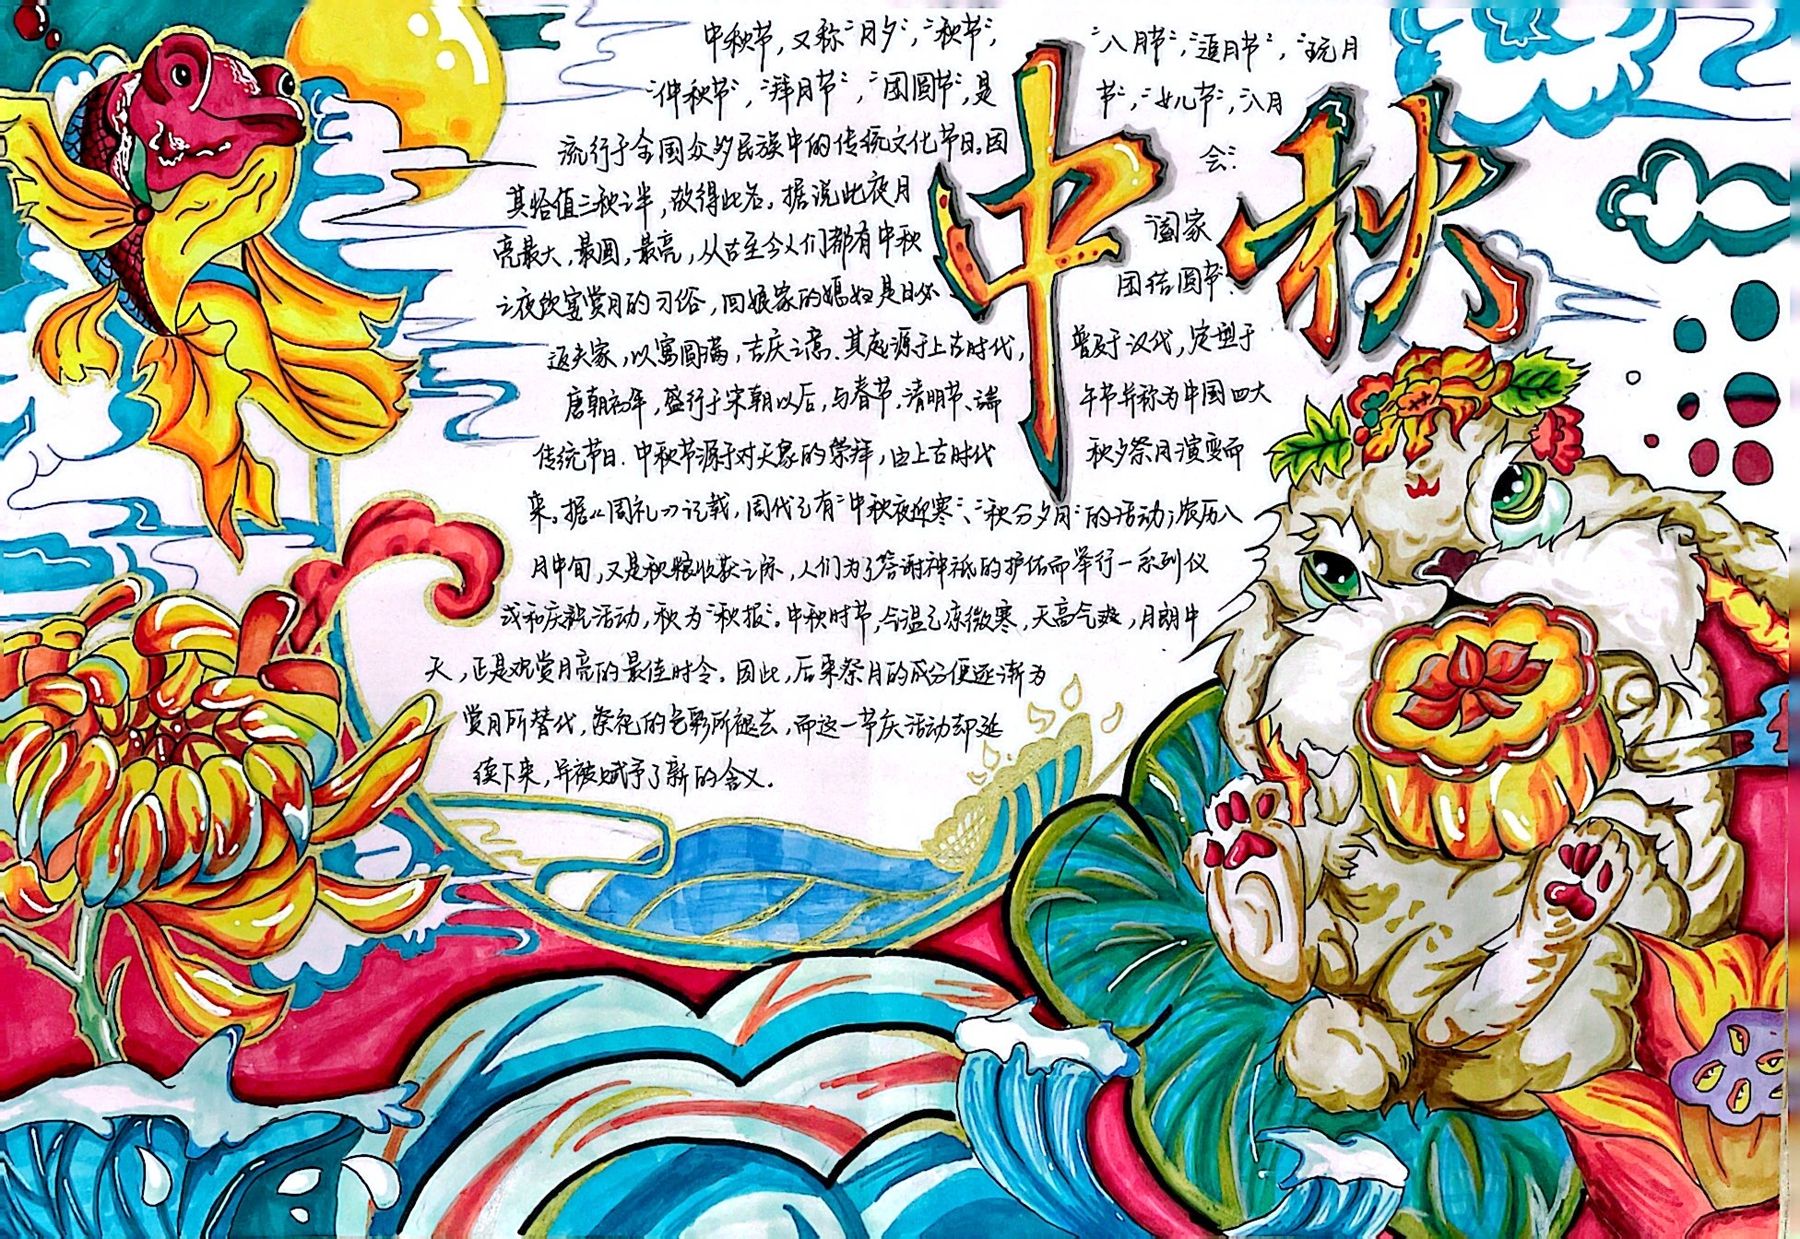 中秋
中秋节，又称“月夕”，“秋节”，“八月节”，“追月节”，“玩月
“仲秋节”，“拜月节”，“团圆节”，是节”，“女儿节”，“八月
流行于全国众多民族中的传统文化节日。因会”
其恰值三秋之半，故得此名。据说此夜月阖家
亮最大，最圆，最亮，从古至今人们都有中秋团结圆节！
之夜饮宴赏月的习俗，回娘家的媳妇是日必
返夫家，以寓圆满，吉庆之意。其起源于上古时代，普及于汉代，定型于
唐朝初年，盛行于宋朝以后，与春节、清明节、端午节并称为中国四大
传统节日．中秋节源于对天象的崇拜，由上古时代秋夕祭月演变而
来。据《周礼》记载，周代已有“中秋夜迎寒”、“秋分夕月”的活动；农历八
月中旬，又是秋粮收获之际，人们为了答谢神祗的护佑而举行一系列仪
式和庆祝活动，称为“秋报”。中秋时节，气温已凉微寒，天高气爽，月朗中
天，正是观赏月亮的最佳时令。因此，后来祭月的成分便逐渐为
赏月所替代，祭祀的色彩所褪去，而这一节庆活动却延
续下来，并被赋予了新的含义。